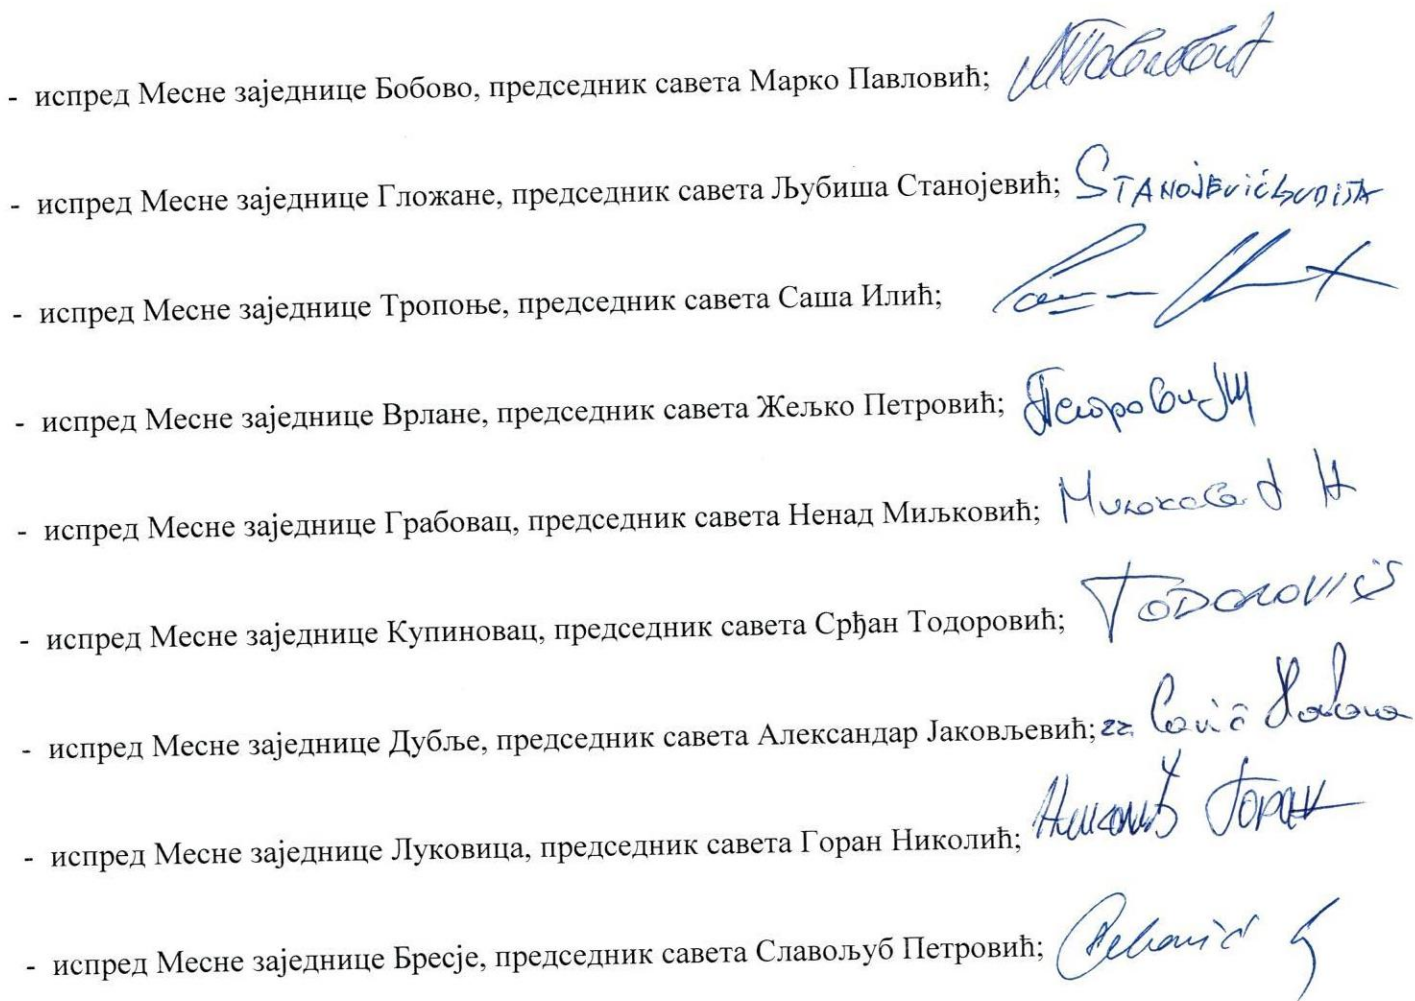 - испред Месне заједнице Бобово, председник савета Марко Павловић;
- испред Месне заједнице Гложане, председник савета Љубиша Станојевић; STANOJEVIĆ
- испред Месне заједнице Тропоње, председник савета Саша Илић;
- испред Месне заједнице Врлане, председник савета Жељко Петровић;
- испред Месне заједнице Грабовац, председник савета Ненад Миљковић;
- испред Месне заједнице Купиновац, председник савета Срђан Тодоровић; TODOROVIĆ
- испред Месне заједнице Дубље, председник савета Александар Јаковљевић;
- испред Месне заједнице Луковица, председник савета Горан Николић; Николић Горан
- испред Месне заједнице Бресје, председник савета Славољуб Петровић;